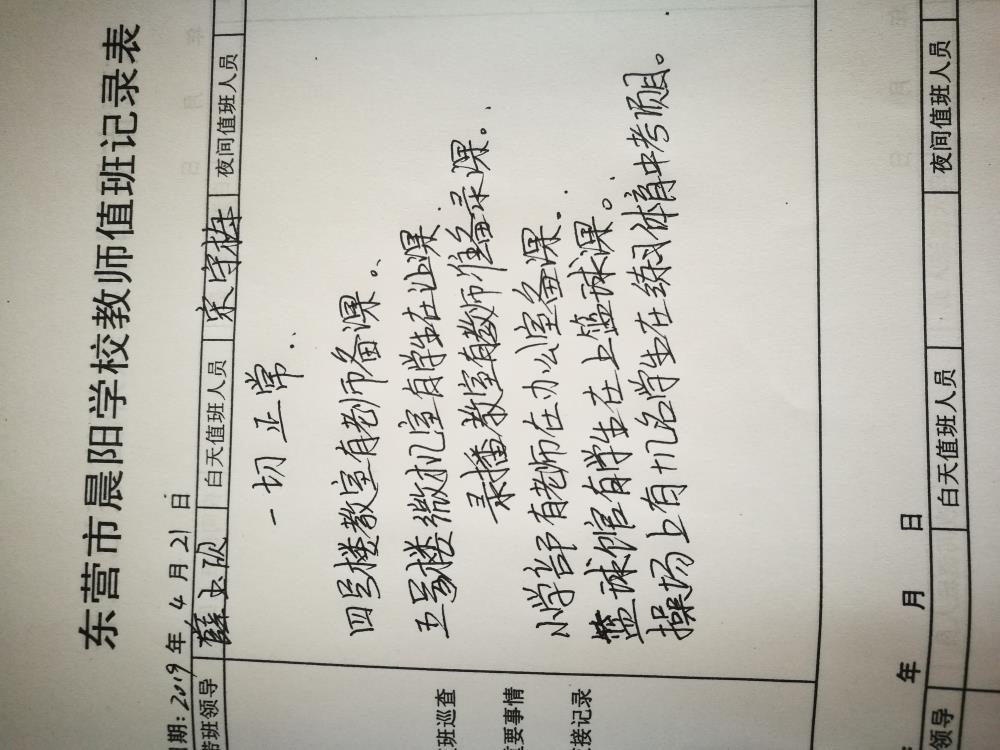 东营市晨阳学校教师值班记录表
日期: 2019 年 4 月 21 日
带班领导 薛 白天值班人员 宋守 夜间值班人员
一切正常.
四号楼教室有老师备课。
五号楼微机室有学生在上课.
录播教室有教师准备录课.
小学部有老师在办公室备课.
篮球馆有学生在上篮球课。
操场上有几名学生在练习体育中考项目。
班巡查
重要事情
接记录
年 月 日
领导 白天值班人员 夜间值班人员